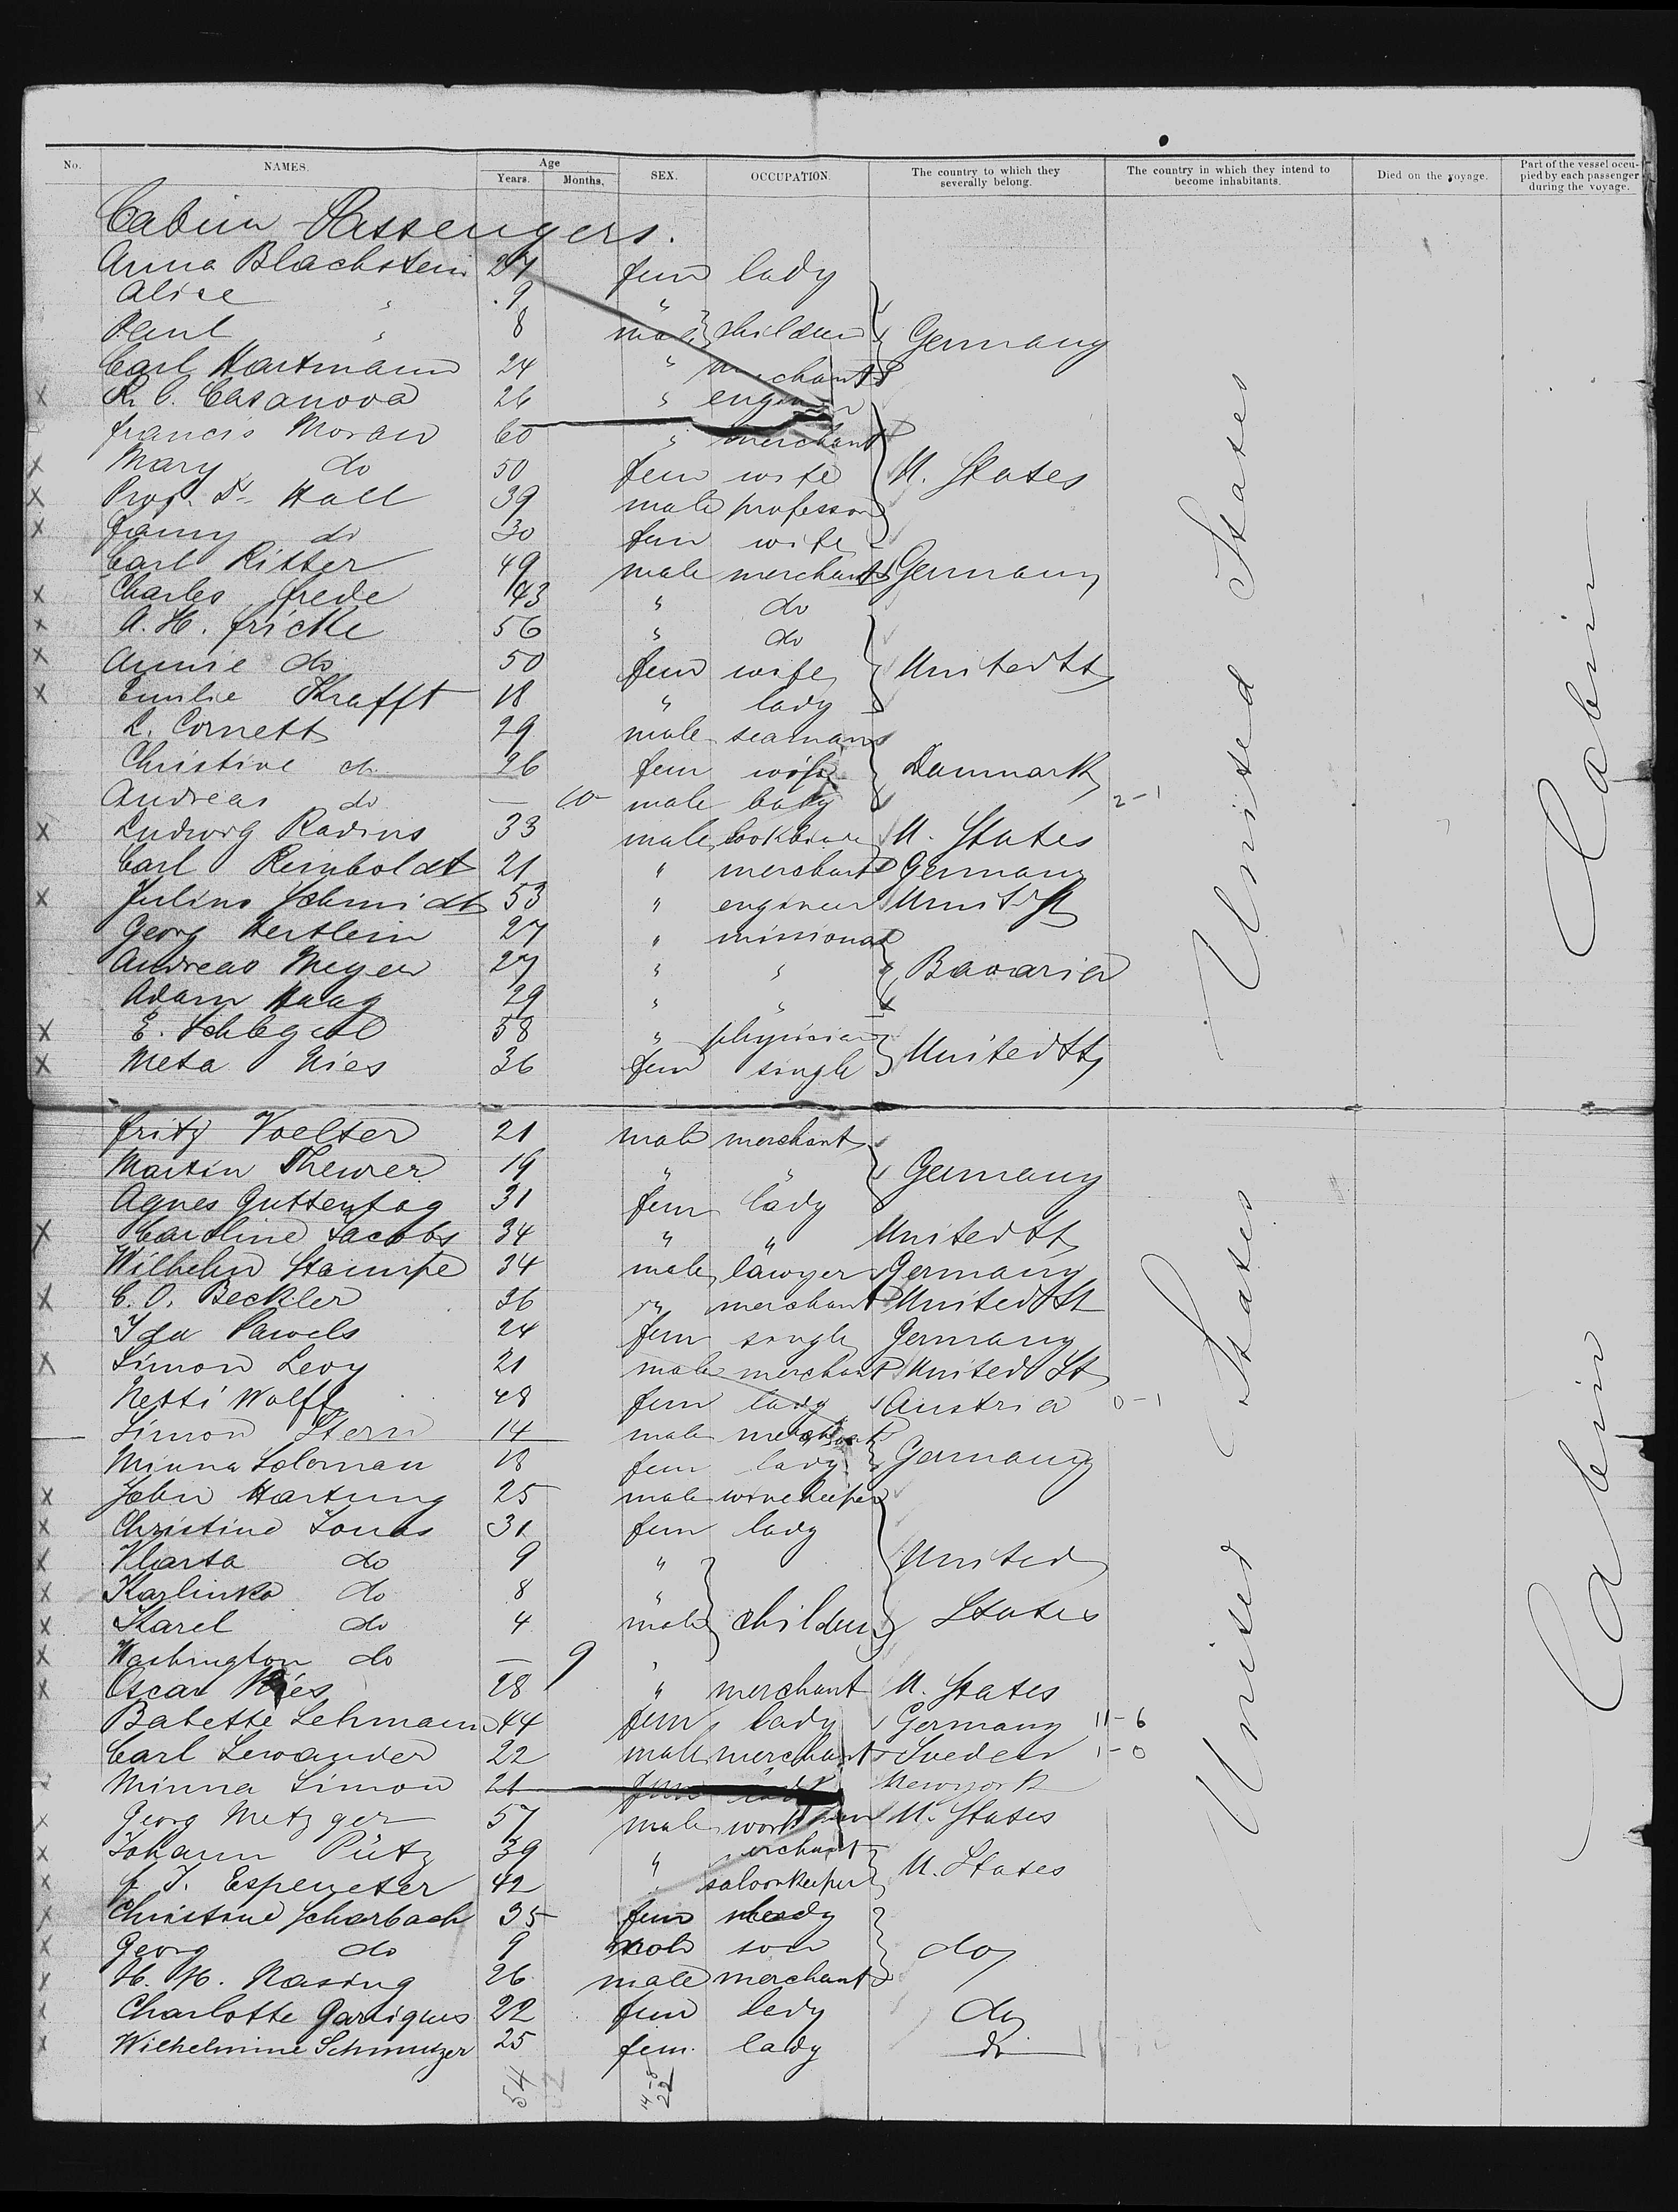 No. NAMES. Age Years. Months. SEX. OCCUPATION. The country to which they severally belong. The country in which they intend to become inhabitants. Died on the voyage. Part of the vessel occupied by each passenger during the voyage.
Cabin Passengers.
Anna Blachstein 27 fem lady
Alice " 9 "
Paul " 8 male children Germany
Carl Hartmann 24 " merchant
X R. C. Casanova 26 " engineer
Francis Moran 60 " merchant
X Mary do 50 fem wife U. States
X Prof. Dr Hall 39 male professor
X Fanny do 30 fem wife
Carl Ritter 49 male merchant Germany
X Charles Frede 43 " do
X A. H. Fricke 56 " do
X Annie do 50 fem wife United St
X Emilie Krafft 18 " lady
L. Cornett 29 male seaman
Christine do 26 fem wife Danmark
Andreas do — 10 male baby 2-1
X Ludwig Radins 33 male bookbinder U. States
Carl Reinboldt 21 " merchant Germany
X Julius Schmidt 53 " engineer United St
Georg Hertlein 27 " missionar
Andreas Meyer 27 " " Bavaria
Adam Haag 29 " "
X E. Schlegel 58 " physician
X Meta Nies 36 fem single United St
Fritz Voelter 21 male merchant
Martin Theurer 19 " " Germany
Agnes Guttentag 31 fem lady
X Caroline Jacobs 34 " " United St
Wilhelm Stampe 34 male lawyer Germany
X C. O. Beckler 36 " merchant United St
Ida Pawels 24 fem single Germany
X Simon Levy 21 male merchant United St
Netti Wolff 48 fem lady Austria 0-1
Simon Stern 14 male merchant
Minna Soloman 18 fem lady Germany
X John Hartung 25 male winekeeper
X Christine Jonas 31 fem lady
X Vlasta do 9 " United
X Karlinka do 8 "
X Karel do 4 male children States
X Washington do — 9 "
X Oscar Ries 28 " merchant U. States
Babette Lehmann 44 fem lady Germany 11-6
Carl Lewander 22 male merchant Sweden 1-0
X Minna Simon 21 fem lady Newyork
X Georg Metzger 57 male workman U. States
X Johann Pütz 39 " merchant
X F. J. Espeneter 42 " saloonkeeper U. States
X Christine Scharbach 35 fem lady
X Georg do 9 male son do
X H. H. Nasing 26 male merchant
X Charlotte Garligues 22 fem lady do
X Wilhelmine Schmutzer 25 fem. lady do
54 22
United States
United States
Cabin
Cabin